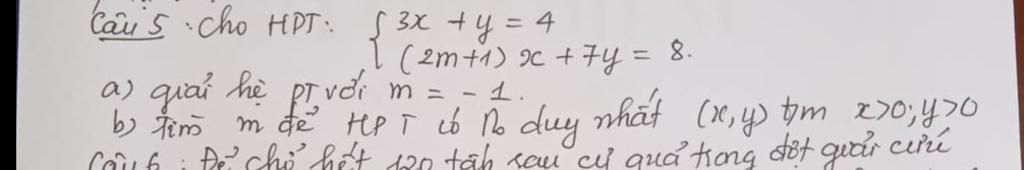 Câu 5 : Cho HPT: { 3x + y = 4
(2m+1) x + 7y = 8.
a) giải hệ PT với m = - 1.
b) Tìm m để HPT có No duy nhất (x,y) t/m x>0; y>0
Câu 6 : Để chở hết 120 tấn rau củ quả trong đợt giải cứu